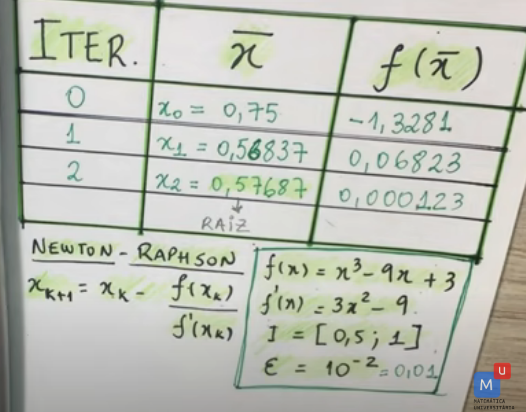 ITER. x̄ f(x̄)
0 x₀ = 0,75 -1,3281
1 x₁ = 0,56837 0,06823
2 x₂ = 0,57687 0,000123
↓
RAIZ
NEWTON - RAPHSON
xₖ₊₁ = xₖ - f(xₖ)/f'(xₖ)
f(x) = x³ - 9x + 3
f'(x) = 3x² - 9
I = [0,5 ; 1]
ε = 10⁻² = 0,01
M U
MATEMÁTICA
UNIVERSITÁRIA